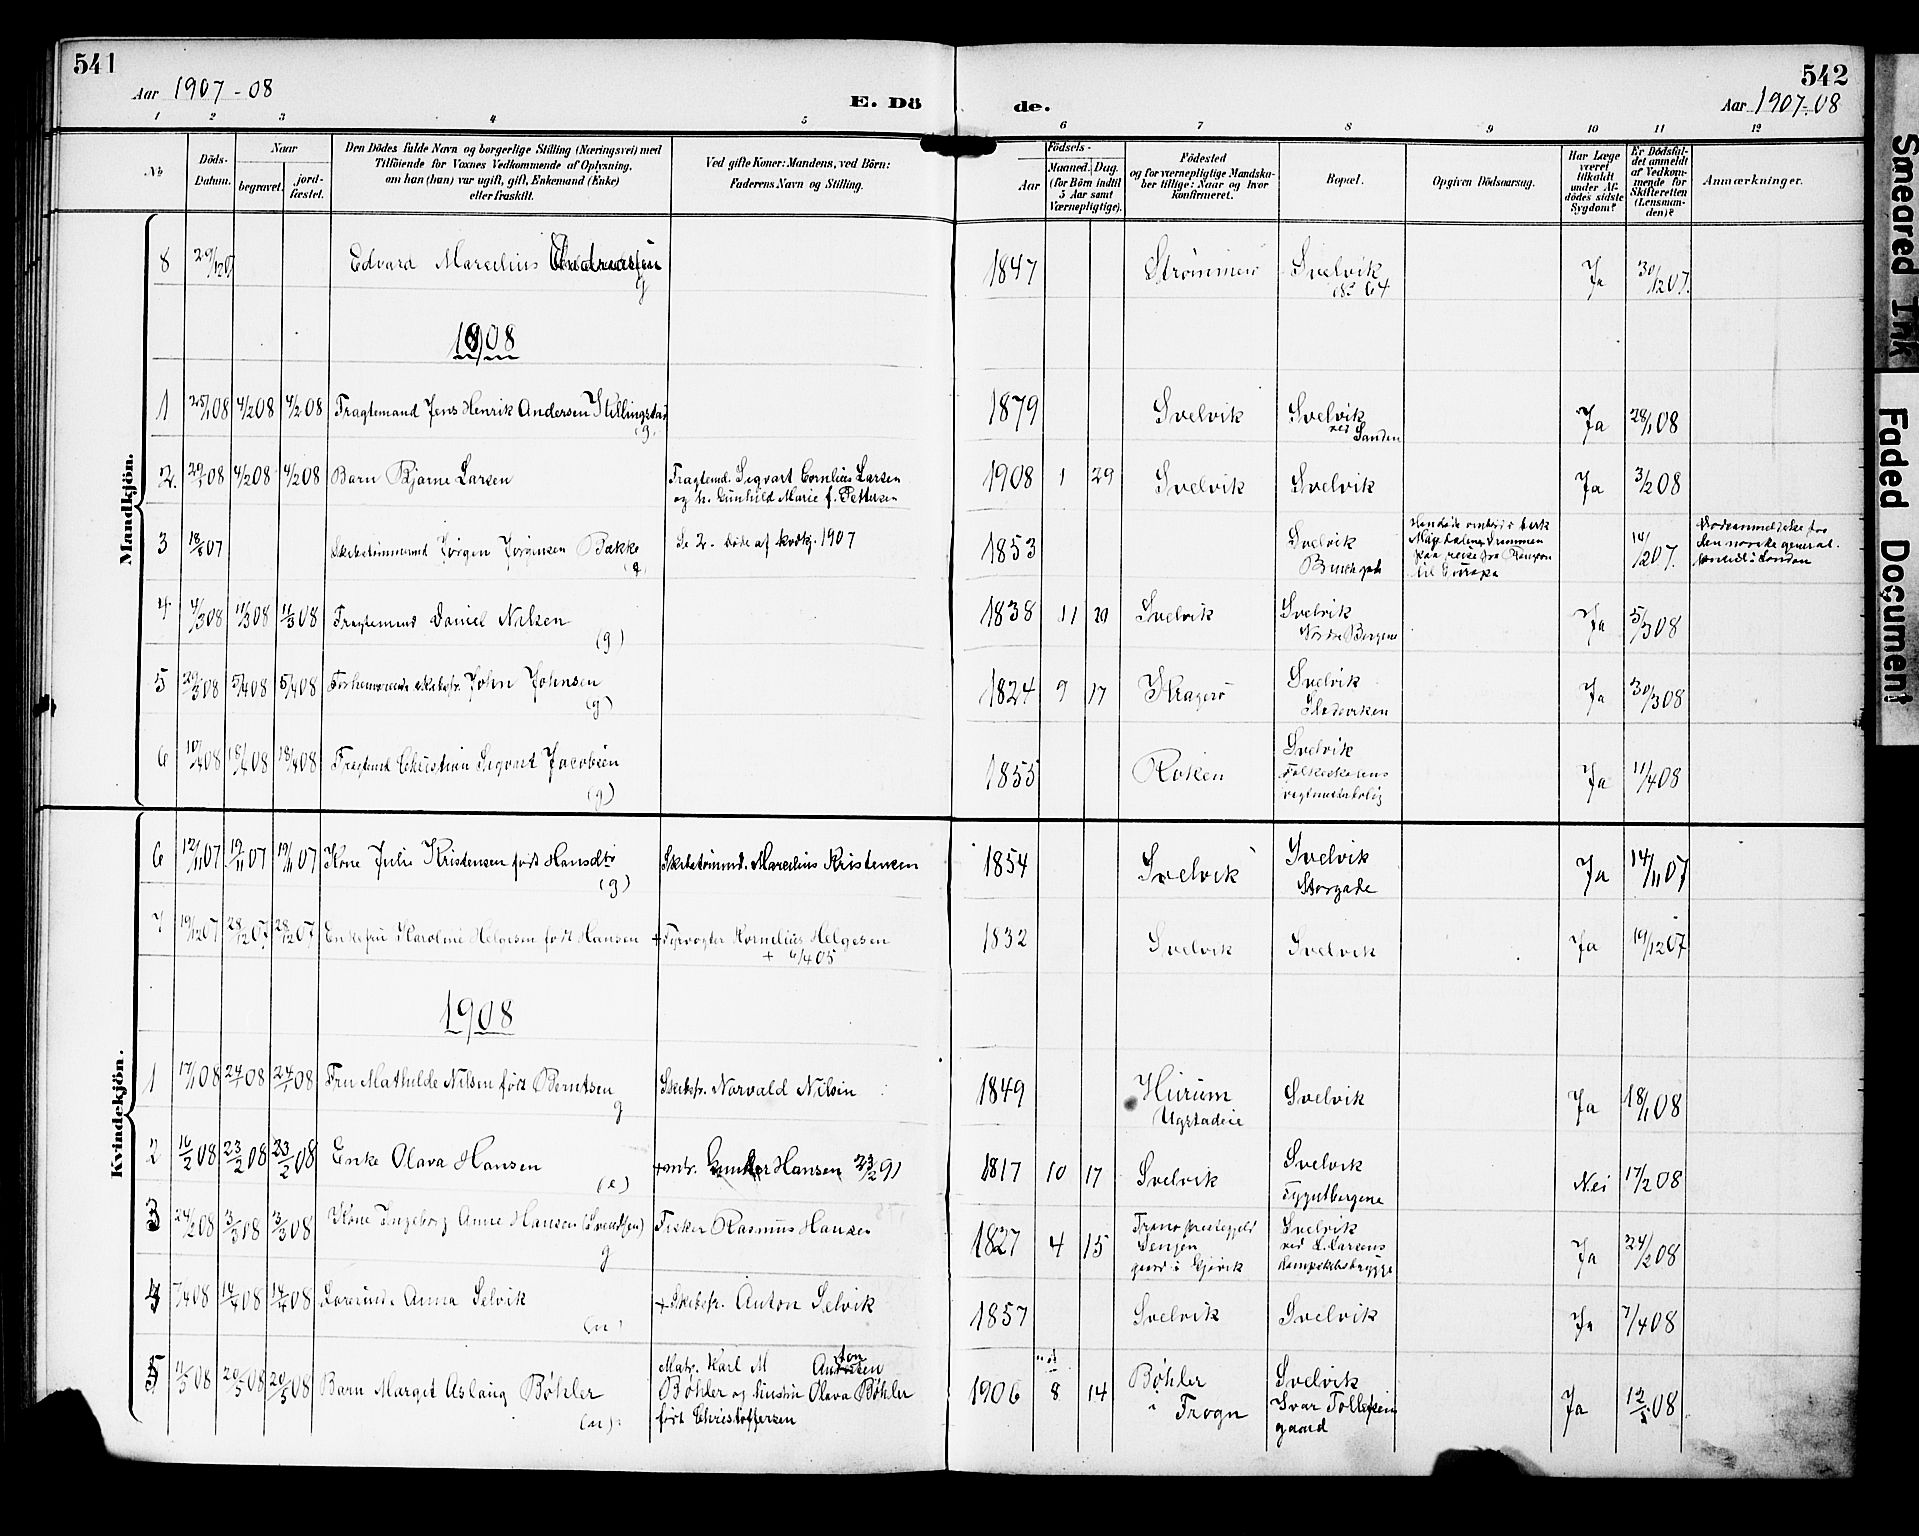 541
Aar 1907-08
E. Dö
de.
542
Aar 1907-08
1 2 3 4 5 6 7 8 9 10 11 12
No
Döds-
Datum.
Naar
begravet.
jord-
fæstet.
Den Dödes fulde Navn og borgerlige Stilling (Næringsvei) med
Tilföiende for Voxnes Vedkommende af Oplysning,
om han (hun) var ugift, gift, Enkemand (Enke)
eller fraskilt.
Ved gifte Koner: Mandens, ved Börn:
Faderens Navn og Stilling.
Födsels-
Aar
Maaned. Dag.
(for Börn indtil
5 Aar samt
Værnepligtige).
Födested
og for værnepligtige Mandska-
ber tillige: Naar og hvor
konfirmeret.
Bopæl.
Opgiven Dödsaarsag.
Har Læge
været
tilkaldt
under Af-
dödes sidste
Sygdom?
Er Dödsfal-
det anmeldt
af Vedkom-
mende for
Skifteretten
(Lensman-
den)?
Anmærkninger.
Mandkjön.
8 29/12 07 Edvard Marcelius Andreassen 1847 Strømmen Svelvik Ja 30/12 07.
g 64
1908
1 25/1 08 4/2 08 4/2 08 Fragtemand Jens Henrik Andersen Stillingstad 1879 Svelvik Svelvik Ja 28/1 08
(g) ved Sanden
2. 29/1 08 4/2 08 4/2 08 Barn Bjarne Larsen Fragtemd. Sigvart Cornelius Larsen 1908 1 29 Svelvik Svelvik Ja 3/2 08
og h. Gunhild Marie f. Pettersen
3 18/ 07 Skibstømmermd Jørgen Jørgensen Bakke Se 2. døde af kvdkj. 1907 1853 Svelvik 14/12 07.
(g) paa reise fra
til Europa
den norske general-
konsul i London
4 4/3 08 11/3 08 11/3 08 Fragtemand Daniel Nilsen 1838 11 20 Svelvik Svelvik Ja 5/3 08
(g) Bergene
5 29/3 08 5/4 08 5/4 08 Forhenværende skibsfr. John Johnsen 1824 9 17 Kragerø Svelvik Ja 30/3 08
(g)
6 10/4 08 18/4 08 18/4 08 Fragtemd Christian Sigvart Jacobsen 1855 Røken Svelvik Ja 11/4 08
(g) Folkeskolens
vagtmesterbolig
Kvindekjön.
6 12/11 07 19/11 07 19/11 07 Kone Julie Kristensen født Hansdtr Skibstømmd. Marcelius Kristensen 1854 Svelvik Svelvik Ja 14/11 07
(g) Storgade
7 19/12 07 28/12 07 28/12 07 Enkefru Karoline Helgesen født Hansen + Fyrvogter Kornelius Helgesen 1832 Svelvik Svelvik Ja 19/12 07
+ 6/4 05
1908
1 17/1 08 24/1 08 24/1 08 Fru Mathilde Nilsen født Berntsen Skibsfr. Norvald Nilsen 1849 Hurum Svelvik Ja 18/1 08
g
2 16/2 08 23/2 08 23/2 08 Enke Olava Hansen + mtr. Gunder Hansen 23/2 91 1817 10 17 Svelvik Svelvik Nei 17/2 08
(e)
3 24/2 08 3/3 08 3/3 08 Kone Ingeborg Anne Hansen (Svendsen) Fisker Rasmus Hansen 1827 4 15 Tranø prestegjeld Svelvik Ja 24/2 08
g Senjen ved L. Larsens
gaard i Gjøvik dampskibsbrygge
4 7/4 08 14/4 08 14/4 08 Lærerinde Anna Selvik + Skibsfr. Anton Selvik 1857 Svelvik Svelvik Ja 7/4 08
(u)
5 11/5 08 20/5 08 20/5 08 Barn Margit Aslaug Bøhler Matr. Karl M Anton 1906 8 14 Bøhler Svelvik Ja 12/5 08
(u) Bøhler og hustru Olava Bøhler i Frogn Ivar Tollefsen
født Christoffersen gaard
Smeared Ink
Faded Document